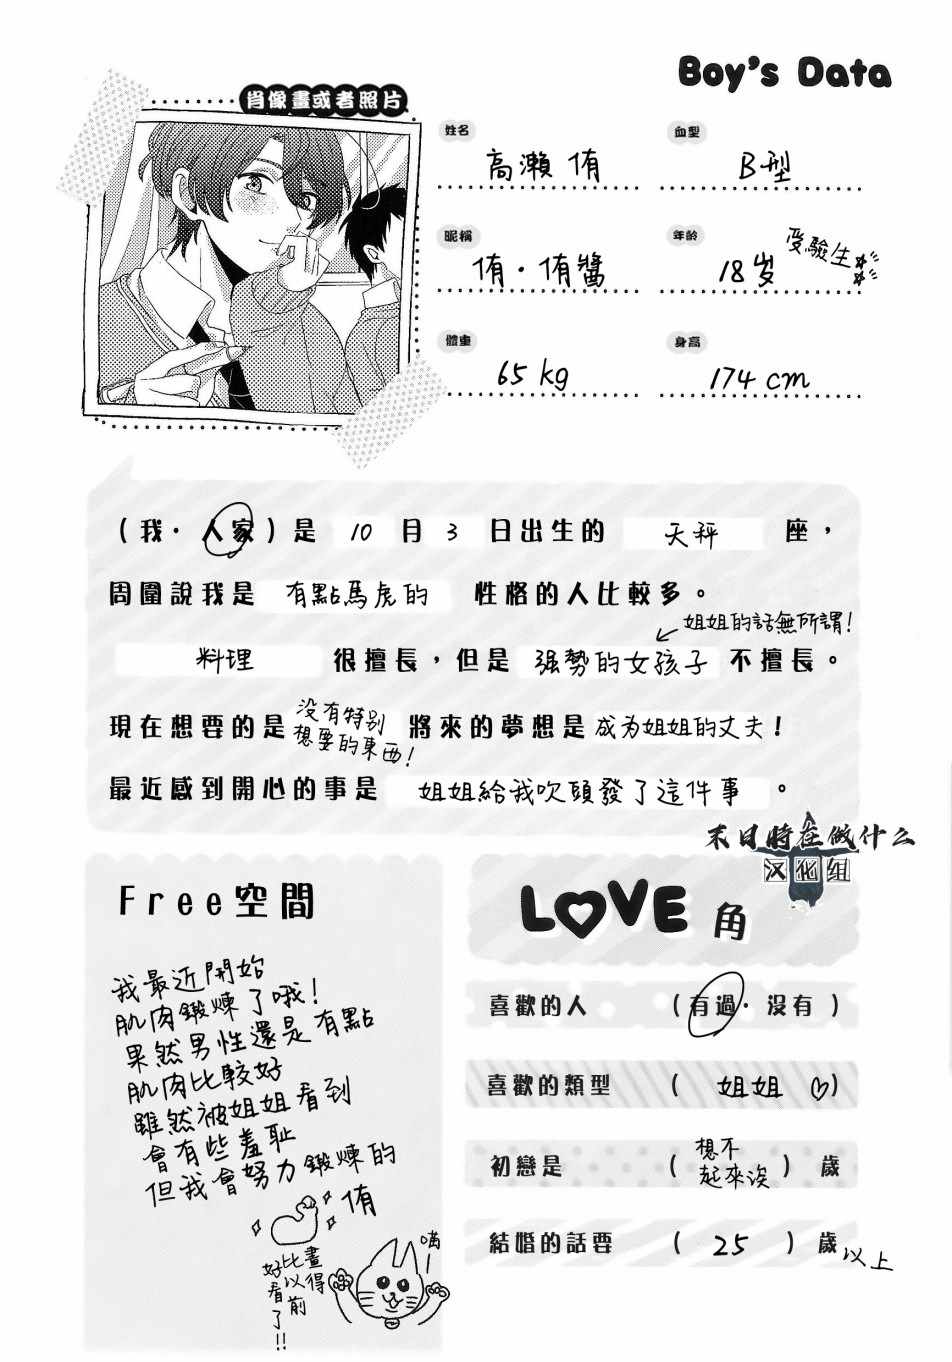 Boy's Data
肖像畫或者照片
姓名
高瀨 侑
血型
B型
昵稱
侑・侑醬
年齡
18岁
受驗生
體重
65 kg
身高
174 cm
（我・人家）是 10 月 3 日出生的 天秤 座，
周圍說我是 有點馬虎的 性格的人比較多。
姐姐的話無所謂！
料理 很擅長，但是 强勢的女孩子 不擅長。
現在想要的是 没有特别想要的東西！ 將來的夢想是 成为姐姐的丈夫！
最近感到開心的事是 姐姐給我吹頭發了這件事 。
末日時在做什么
汉化组
Free空間
我最近開始
肌肉鍛煉了哦！
果然男性還是有點
肌肉比較好
雖然被姐姐看到
會有些羞恥
但我會努力鍛煉的
侑
畫得
比以前
好看了!!
喵
LOVE角
喜歡的人 （有過・没有）
喜歡的類型 （ 姐姐 ♡）
初戀是 （想不起來诶） 歲
結婚的話要 （ 25 ） 歲以上